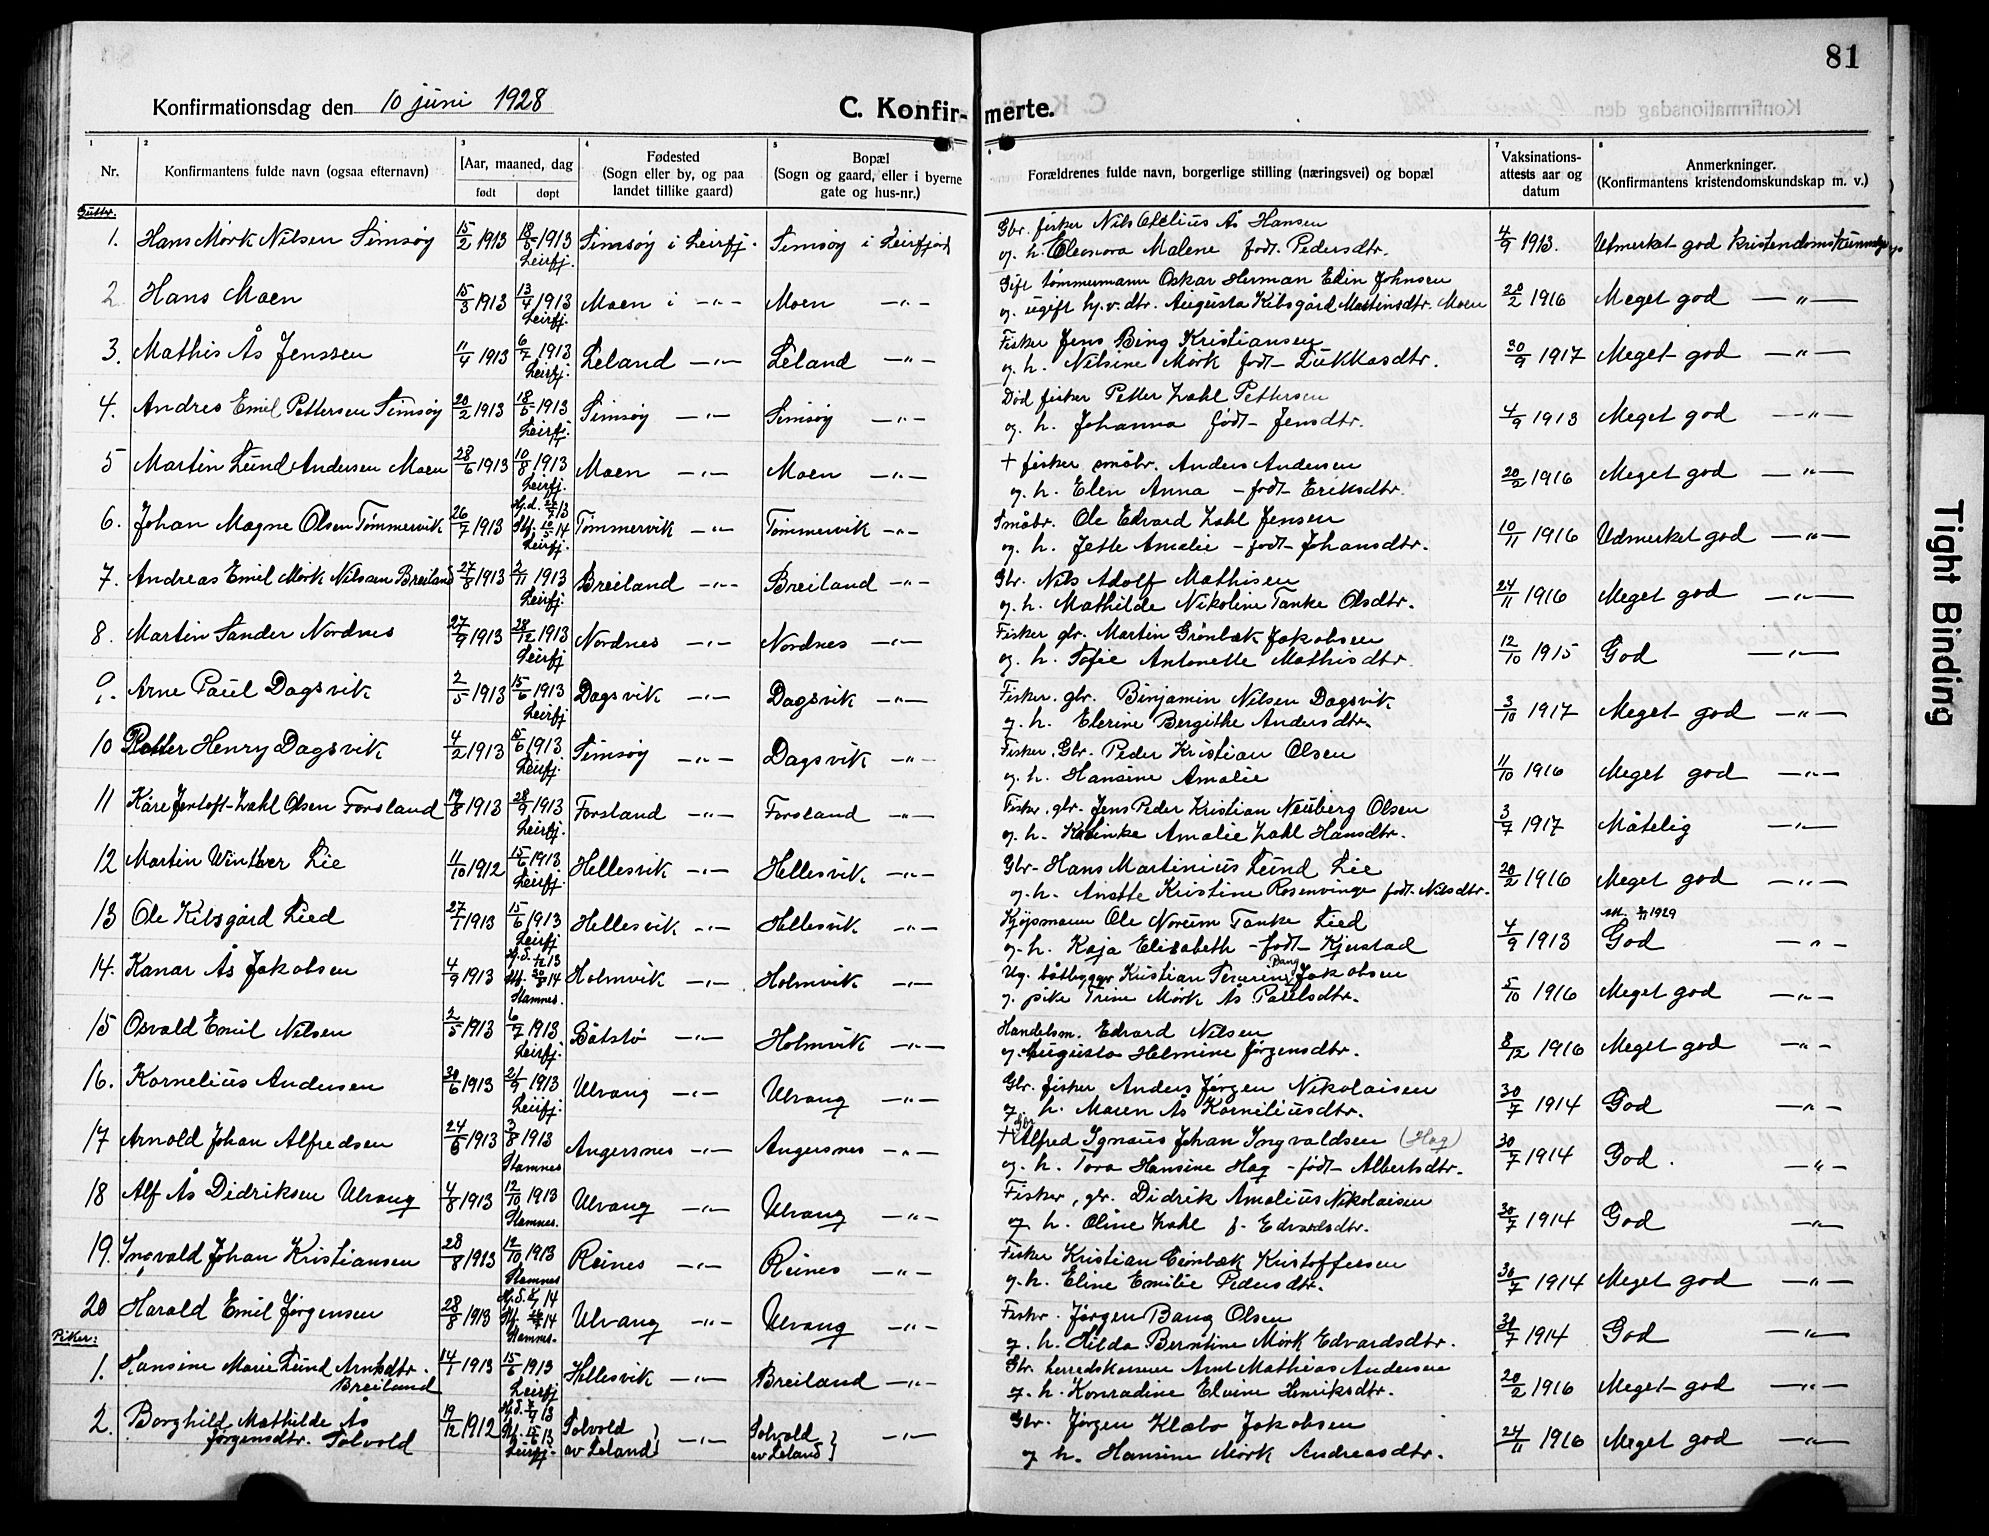 81
Konfirmationsdag den 10 juni 1928
C. Konfirmerte.
1 2 3 4 5 6 7 8
Nr.
Konfirmantens fulde navn (ogsaa efternavn)
Aar, maaned, dag
født døpt
Fødested
(Sogn eller by, og paa
landet tillike gaard)
Bopæl
(Sogn og gaard, eller i byerne
gate og hus-nr.)
Forældrenes fulde navn, borgerlige stilling (næringsvei) og bopæl
Vaksinations-
attests aar og
datum
Anmerkninger.
(Konfirmantens kristendomskundskap m. v.)
Gutter.
1. Hans Mørk Nilsen Simsøy 15/2 1913 18/5 1913 Leirfj. Simsøy i Leirfj. Simsøy i Leirfjord
Gbr. fisker Nils Åš Hansen
og h. Eleonora Malene født Pedersdtr. 4/9 1913. Utmerket god kristendomskunnskap
2 Hans Moen 15/3 1913 13/4 1913 Leirfj. Moen i -"- Moen -"-
Gift tømmermann Oskar Herman Edin Johnsen
og ugift hj.v. dtr. Augusta Kibsgård Martinsdtr. Moen 20/2 1916 Meget god -"-
3. Mathis Ås Jenssen 11/4 1913 6/7 1913 Leirfj. Leland -"- Leland -"-
Fisker Jens Bing Kristiansen
og h. Nilsine Mørk født Lukkasdtr. 20/9 1917 Meget god -"-
4. Andres Emil Pettersen Simsøy 20/2 1913 18/5 1913 Leirfj. Simsøy -"- Simsøy -"-
Død fisker Petter Zahl Pettersen
og h. Johanna født Jensdtr. 4/9 1913 Meget god -"-
5 Martin Lund Andersen Moen 28/6 1913 10/8 1913 Leirfj. Moen -"- Moen -"-
+ fisker småbr. Anders Andersen
og h. Elen Anna - født Eriksdtr. 20/2 1916 Meget god -"-
6. Johan Magne Olsen Tømmervik 26/7 1913 Hj.d. 27/7 13 Stf. 10/5 14 Leirfj. Tømmervik -"- Tømmervik -"-
Småbr. Ole Edvard Zahl Jensen
og h. Jette Amalie - født Johansdtr. 10/11 1916 Udmerket god -"-
7. Andreas Emil Mørk Nilsen Breiland 27/8 1913 2/11 1913 Leirfj. Breiland -"- Breiland -"-
Gbr. Nils Adolf Mathisen
og h. Mathilde Nikoline Tanke Olsdtr. 24/11 1916 Meget god -"-
8. Martin Sander Nordnes 27/9 1913 28/12 1913 Leirfj Nordnes -"- Nordnes -"-
Fisker gbr. Martin Grønbæk Jakobsen
og h. Sofie Antonette Mathisdtr. 12/10 1915 God -"-
9. Arne Paul Dagsvik 2/5 1913 15/6 1913 Leirfj Dagsvik -"- Dagsvik -"-
Fisker. gbr. Binjamin Nilsen Dagsvik
og h. Elerine Bergitke Andersdtr. 3/10 1917 Meget god -"-
10 Petter Henry Dagsvik 4/2 1913 15/6 1913 Leirfj. Simsøy -"- Dagsvik -"-
Fisker. Gbr. Peder Kristian Olsen
og h. Hansine Amalie 11/10 1916 Meget god -"-
11 Kåre Jentoft Zahl Olsen Forsland 19/8 1913 28/9 1913 Leirfj. Forsland -"- Forsland -"-
Fisker. gbr. Jens Peder Kristian Neuberg Olsen
og h. Amalie Zahl Hansdtr. 3/7 1917 Måtelig -"-
12 Martin Winther Lie 11/10 1912 15/6 1913 Leirfj. Hellesvik -"- Hellesvik -"-
Gbr. Hans Martinius Lund Lie
og h. Anette Kristine Rosenvinge født Nilsdtr. 20/2 1916 Meget god -"-
13 Ole Kibsgård Lied 27/1 1913 15/6 1913 Leirfj Hellesvik -"- Hellesvik -"-
Kjøpmann Ole Norum Tanke Lied
og h. Kaja Elisabeth - født Kjustad 4/9 1913 God -"-
1929
14. Kanar Ås Jakobsen 4/9 1913 Hj.d. 13 Stf. 14 Stamnes. Holmvik -"- Holmvik -"-
Ug. båtbygger Kristian Bang Jakobsen
og pike Trine Mørk Ås Paulsdtr. 5/10 1916 Meget god -"-
15 Osvald Emil Nilsen 2/5 1913 6/7 1913 Leirfj. Båtstø -"- Holmvik -"-
Handelsm. Edvard Nilsen
og Augusta Helmine Jørgensdtr. 8/12 1916 Meget god -"-
16. Kornelius Andersen 30/6 1913 21/9 1913 Leirfj. Ulvang -"- Ulvang -"-
Gbr. fisker Anders Jørgen Nikolaisen
og h. Maren Ås Korneliusdtr. 30/7 1914 God -"-
17 Arnold Johan Alfredsen 24/6 1913 3/8 1913 Stamnes Angersnes -"- Angersnes -"-
+ Gbr Alfred Ignaus Johan Ingvaldsen (Hag)
og h. Tora Hansine Hag - født Albertsdtr. 30/7 1914 God. -"-
18 Alf Ås Didriksen Ulvang 4/8 1913 12/10 1913 Stamnes. Ulvang -"- Ulvang -"-
Fisker, gbr. Didrik Amalius Nikolaisen
og h. Oline Zahl f. Edvardsdtr. 30/7 1914 God -"-
19. Ingvald Johan Kristiansen 28/8 1913 12/10 1913 Stamnes Reines -"- Reines -"-
Fisker Kristian Kristoffersen
og h. Eline Emilie Pedersdtr. 30/7 1914 Meget god -"-
20 Harald Emil Jørgensen 28/8 1913 Hj.d. 14 Stf. 14 Stamnes. Ulvang -"- Ulvang -"-
Fisker. Jørgen Bang Olsen
og h. Hilda Berntine Mørk Edvardsdtr. 30/7 1914 God -"-
Piker:
1. Hansine Marie Lund Arntsdtr. Breiland 14/1 1913 15/6 1913 Leirfj Hellesvik -"- Breiland -"-
Gbr. herredskasserer Arnt Mathias Andersen
og h. Konradine Elvine Henriksdtr. 20/2 1916 Meget god -"-
2. Borghild Mathilde Ås Jørgensdtr. Solvold 19/12 1912 Hj.d. 13 Stf. 15/6 13 Leirfj. Solvold av Leland} -"- Solvold av Leland} -"-
Gbr. Jørgen Klæbo Jakobsen
og h. Hansine Mørk Andreasdtr. 24/11 1916 Meget god -"-
Tight Binding